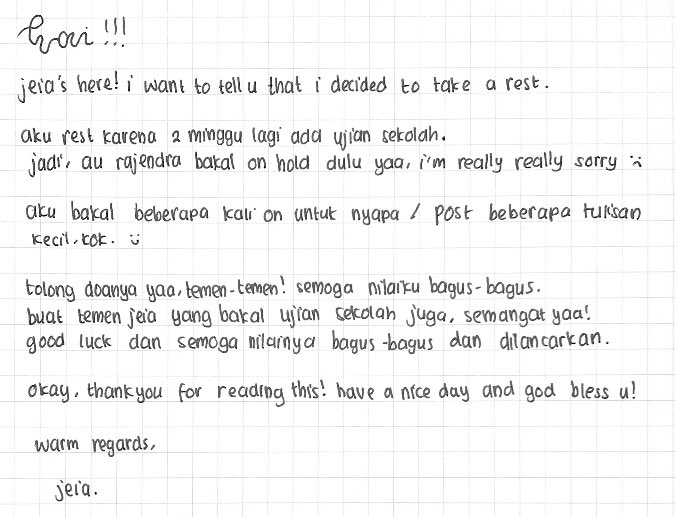 haii!!!
jeia's here! i want to tell u that i decided to take a rest.
aku rest karena 2 minggu lagi ada ujian sekolah.
jadi, au rajendra bakal on hold dulu yaa, i'm really really sorry :(
aku bakal beberapa kali on untuk nyapa / post beberapa tulisan
kecil, kok. :)
tolong doanya yaa, temen-temen! semoga nilaiku bagus-bagus.
buat temen jeia yang bakal ujian sekolah juga, semangat yaa!
good luck dan semoga nilainya bagus-bagus dan dilancarkan.
okay, thankyou for reading this! have a nice day and god bless u!
warm regards,
jeia.